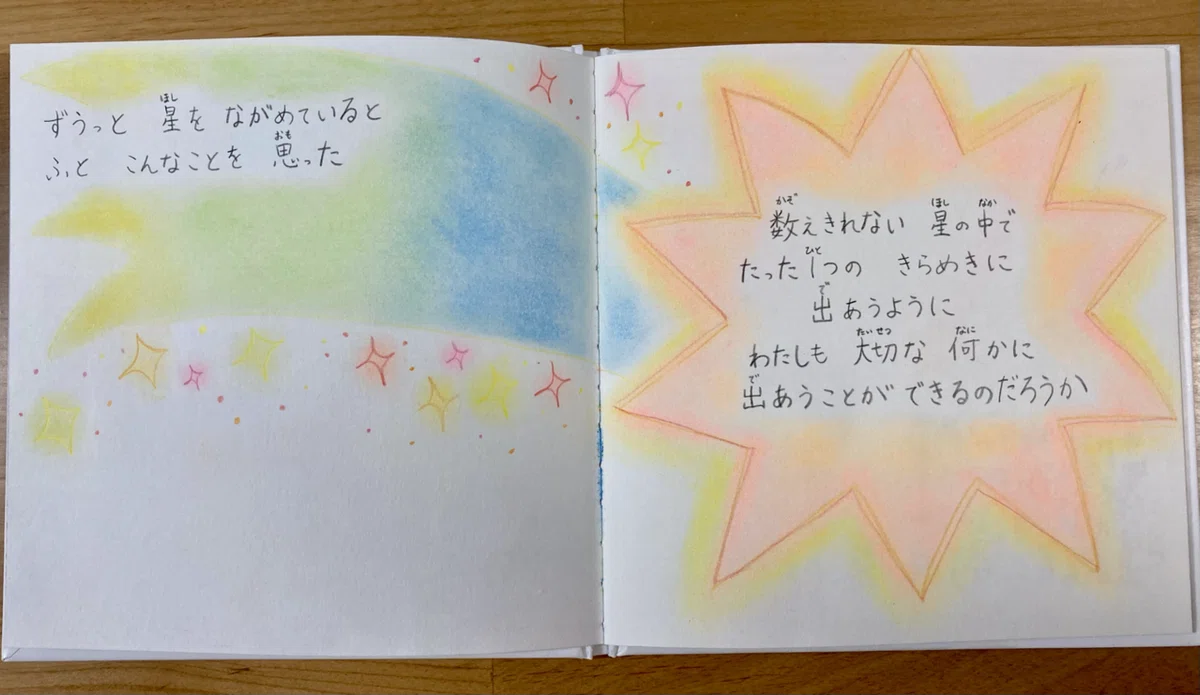 ずうっと 星を ながめていると
ふと こんなことを 思った
数えきれない 星の中で
たった1つの きらめきに
出あうように
わたしも 大切な 何かに
出あうことが できるのだろうか